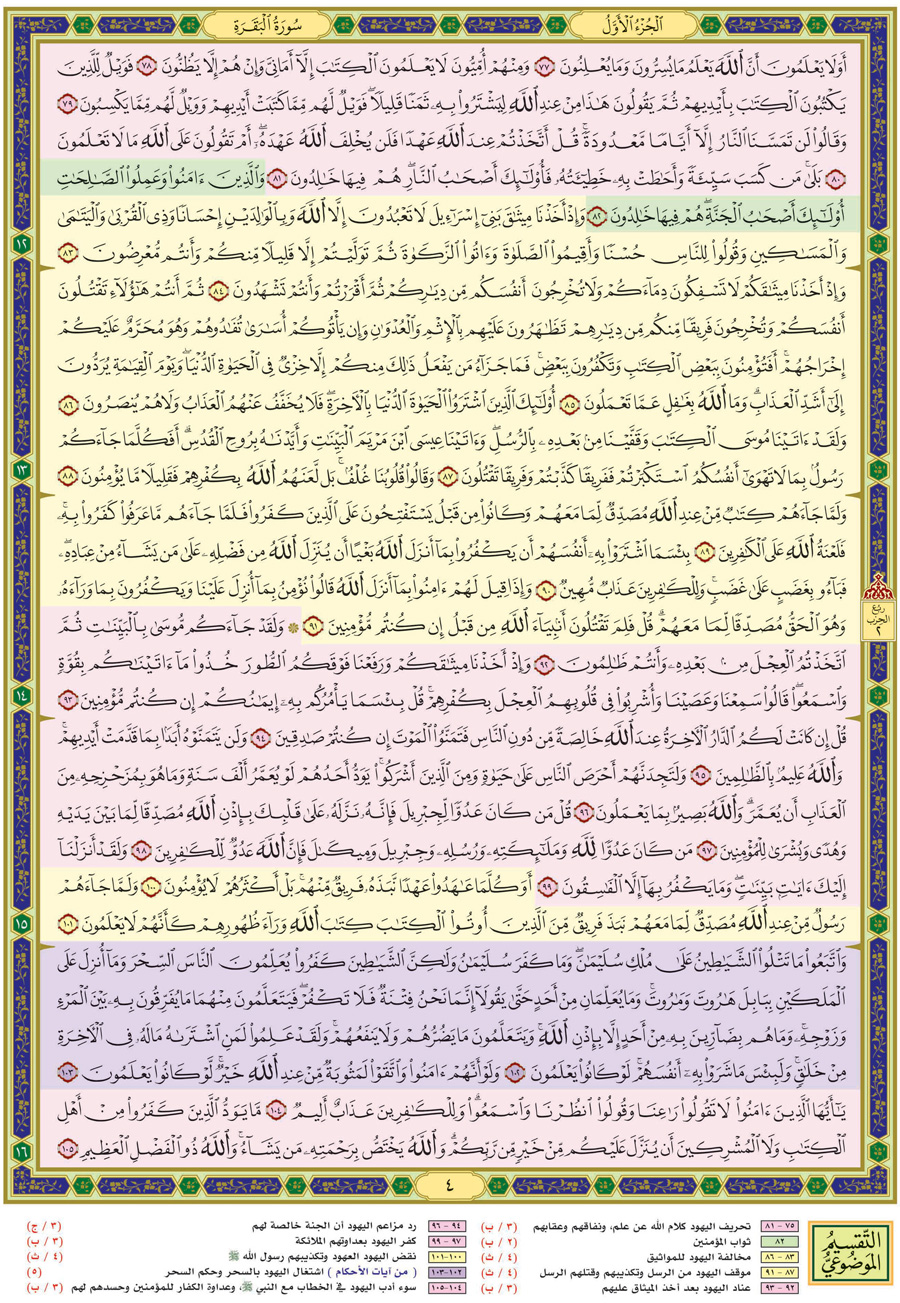 الْجُزْءُ الْأَوَّلُ
سُورَةُ الْبَقَرَةِ
أَوَلَا يَعْلَمُونَ أَنَّ ٱللَّهَ يَعْلَمُ مَا يُسِرُّونَ وَمَا يُعْلِنُونَ ٧٧ وَمِنْهُمْ أُمِّيُّونَ لَا يَعْلَمُونَ ٱلْكِتَٰبَ إِلَّآ أَمَانِىَّ وَإِنْ هُمْ إِلَّا يَظُنُّونَ ٧٨ فَوَيْلٌ لِّلَّذِينَ
يَكْتُبُونَ ٱلْكِتَٰبَ بِأَيْدِيهِمْ ثُمَّ يَقُولُونَ هَٰذَا مِنْ عِندِ ٱللَّهِ لِيَشْتَرُوا۟ بِهِۦ ثَمَنًا قَلِيلًا ۖ فَوَيْلٌ لَّهُم مِّمَّا كَتَبَتْ أَيْدِيهِمْ وَوَيْلٌ لَّهُم مِّمَّا يَكْسِبُونَ ٧٩
وَقَالُوا۟ لَن تَمَسَّنَا ٱلنَّارُ إِلَّآ أَيَّامًا مَّعْدُودَةً ۚ قُلْ أَتَّخَذْتُمْ عِندَ ٱللَّهِ عَهْدًا فَلَن يُخْلِفَ ٱللَّهُ عَهْدَهُۥٓ ۖ أَمْ تَقُولُونَ عَلَى ٱللَّهِ مَا لَا تَعْلَمُونَ
٨٠ بَلَىٰ مَن كَسَبَ سَيِّئَةً وَأَحَٰطَتْ بِهِۦ خَطِيٓـَٔتُهُۥ فَأُو۟لَٰٓئِكَ أَصْحَٰبُ ٱلنَّارِ ۖ هُمْ فِيهَا خَٰلِدُونَ ٨١ وَٱلَّذِينَ ءَامَنُوا۟ وَعَمِلُوا۟ ٱلصَّٰلِحَٰتِ
أُو۟لَٰٓئِكَ أَصْحَٰبُ ٱلْجَنَّةِ ۖ هُمْ فِيهَا خَٰلِدُونَ ٨٢ وَإِذْ أَخَذْنَا مِيثَٰقَ بَنِىٓ إِسْرَٰٓءِيلَ لَا تَعْبُدُونَ إِلَّا ٱللَّهَ وَبِٱلْوَٰلِدَيْنِ إِحْسَانًا وَذِى ٱلْقُرْبَىٰ وَٱلْيَتَٰمَىٰ
وَٱلْمَسَٰكِينِ وَقُولُوا۟ لِلنَّاسِ حُسْنًا وَأَقِيمُوا۟ ٱلصَّلَوٰةَ وَءَاتُوا۟ ٱلزَّكَوٰةَ ثُمَّ تَوَلَّيْتُمْ إِلَّا قَلِيلًا مِّنكُمْ وَأَنتُم مُّعْرِضُونَ ٨٣
وَإِذْ أَخَذْنَا مِيثَٰقَكُمْ لَا تَسْفِكُونَ دِمَآءَكُمْ وَلَا تُخْرِجُونَ أَنفُسَكُم مِّن دِيَٰرِكُمْ ثُمَّ أَقْرَرْتُمْ وَأَنتُمْ تَشْهَدُونَ ٨٤ ثُمَّ أَنتُمْ هَٰٓؤُلَآءِ تَقْتُلُونَ
أَنفُسَكُمْ وَتُخْرِجُونَ فَرِيقًا مِّنكُم مِّن دِيَٰرِهِمْ تَظَٰهَرُونَ عَلَيْهِم بِٱلْإِثْمِ وَٱلْعُدْوَٰنِ وَإِن يَأْتُوكُمْ أُسَٰرَىٰ تُفَٰدُوهُمْ وَهُوَ مُحَرَّمٌ عَلَيْكُمْ
إِخْرَاجُهُمْ ۚ أَفَتُؤْمِنُونَ بِبَعْضِ ٱلْكِتَٰبِ وَتَكْفُرُونَ بِبَعْضٍ ۚ فَمَا جَزَآءُ مَن يَفْعَلُ ذَٰلِكَ مِنكُمْ إِلَّا خِزْىٌ فِى ٱلْحَيَوٰةِ ٱلدُّنْيَا ۖ وَيَوْمَ ٱلْقِيَٰمَةِ يُرَدُّونَ
إِلَىٰٓ أَشَدِّ ٱلْعَذَابِ ۗ وَمَا ٱللَّهُ بِغَٰفِلٍ عَمَّا تَعْمَلُونَ ٨٥ أُو۟لَٰٓئِكَ ٱلَّذِينَ ٱشْتَرَوُا۟ ٱلْحَيَوٰةَ ٱلدُّنْيَا بِٱلْـَٔاخِرَةِ ۖ فَلَا يُخَفَّفُ عَنْهُمُ ٱلْعَذَابُ وَلَا هُمْ يُنصَرُونَ ٨٦
وَلَقَدْ ءَاتَيْنَا مُوسَى ٱلْكِتَٰبَ وَقَفَّيْنَا مِنۢ بَعْدِهِۦ بِٱلرُّسُلِ ۖ وَءَاتَيْنَا عِيسَى ٱبْنَ مَرْيَمَ ٱلْبَيِّنَٰتِ وَأَيَّدْنَٰهُ بِرُوحِ ٱلْقُدُسِ ۗ أَفَكُلَّمَا جَآءَكُمْ
رَسُولٌۢ بِمَا لَا تَهْوَىٰٓ أَنفُسُكُمُ ٱسْتَكْبَرْتُمْ فَفَرِيقًا كَذَّبْتُمْ وَفَرِيقًا تَقْتُلُونَ ٨٧ وَقَالُوا۟ قُلُوبُنَا غُلْفٌۢ ۚ بَل لَّعَنَهُمُ ٱللَّهُ بِكُفْرِهِمْ فَقَلِيلًا مَّا يُؤْمِنُونَ ٨٨
وَلَمَّا جَآءَهُمْ كِتَٰبٌ مِّنْ عِندِ ٱللَّهِ مُصَدِّقٌ لِّمَا مَعَهُمْ وَكَانُوا۟ مِن قَبْلُ يَسْتَفْتِحُونَ عَلَى ٱلَّذِينَ كَفَرُوا۟ فَلَمَّا جَآءَهُم مَّا عَرَفُوا۟ كَفَرُوا۟ بِهِۦ ۚ
فَلَعْنَةُ ٱللَّهِ عَلَى ٱلْكَٰفِرِينَ ٨٩ بِئْسَمَا ٱشْتَرَوْا۟ بِهِۦٓ أَنفُسَهُمْ أَن يَكْفُرُوا۟ بِمَآ أَنزَلَ ٱللَّهُ بَغْيًا أَن يُنَزِّلَ ٱللَّهُ مِن فَضْلِهِۦ عَلَىٰ مَن يَشَآءُ مِنْ عِبَادِهِۦ ۖ
فَبَآءُو بِغَضَبٍ عَلَىٰ غَضَبٍ ۚ وَلِلْكَٰفِرِينَ عَذَابٌ مُّهِينٌ ٩٠ وَإِذَا قِيلَ لَهُمْ ءَامِنُوا۟ بِمَآ أَنزَلَ ٱللَّهُ قَالُوا۟ نُؤْمِنُ بِمَآ أُنزِلَ عَلَيْنَا وَيَكْفُرُونَ بِمَا وَرَآءَهُۥ
وَهُوَ ٱلْحَقُّ مُصَدِّقًا لِّمَا مَعَهُمْ ۗ قُلْ فَلِمَ تَقْتُلُونَ أَنۢبِيَآءَ ٱللَّهِ مِن قَبْلُ إِن كُنتُم مُّؤْمِنِينَ ٩١ ۞ وَلَقَدْ جَآءَكُم مُّوسَىٰ بِٱلْبَيِّنَٰتِ ثُمَّ
ٱتَّخَذْتُمُ ٱلْعِجْلَ مِنۢ بَعْدِهِۦ وَأَنتُمْ ظَٰلِمُونَ ٩٢ وَإِذْ أَخَذْنَا مِيثَٰقَكُمْ وَرَفَعْنَا فَوْقَكُمُ ٱلطُّورَ خُذُوا۟ مَآ ءَاتَيْنَٰكُم بِقُوَّةٍ
وَٱسْمَعُوا۟ ۖ قَالُوا۟ سَمِعْنَا وَعَصَيْنَا وَأُشْرِبُوا۟ فِى قُلُوبِهِمُ ٱلْعِجْلَ بِكُفْرِهِمْ ۚ قُلْ بِئْسَمَا يَأْمُرُكُم بِهِۦٓ إِيمَٰنُكُمْ إِن كُنتُم مُّؤْمِنِينَ ٩٣
قُلْ إِن كَانَتْ لَكُمُ ٱلدَّارُ ٱلْـَٔاخِرَةُ عِندَ ٱللَّهِ خَالِصَةً مِّن دُونِ ٱلنَّاسِ فَتَمَنَّوُا۟ ٱلْمَوْتَ إِن كُنتُمْ صَٰدِقِينَ ٩٤ وَلَن يَتَمَنَّوْهُ أَبَدًۢا بِمَا قَدَّمَتْ أَيْدِيهِمْ ۗ
وَٱللَّهُ عَلِيمٌۢ بِٱلظَّٰلِمِينَ ٩٥ وَلَتَجِدَنَّهُمْ أَحْرَصَ ٱلنَّاسِ عَلَىٰ حَيَوٰةٍ وَمِنَ ٱلَّذِينَ أَشْرَكُوا۟ ۚ يَوَدُّ أَحَدُهُمْ لَوْ يُعَمَّرُ أَلْفَ سَنَةٍ وَمَا هُوَ بِمُزَحْزِحِهِۦ مِنَ
ٱلْعَذَابِ أَن يُعَمَّرَ ۗ وَٱللَّهُ بَصِيرٌۢ بِمَا يَعْمَلُونَ ٩٦ قُلْ مَن كَانَ عَدُوًّا لِّجِبْرِيلَ فَإِنَّهُۥ نَزَّلَهُۥ عَلَىٰ قَلْبِكَ بِإِذْنِ ٱللَّهِ مُصَدِّقًا لِّمَا بَيْنَ يَدَيْهِ
وَهُدًى وَبُشْرَىٰ لِلْمُؤْمِنِينَ ٩٧ مَن كَانَ عَدُوًّا لِّلَّهِ وَمَلَٰٓئِكَتِهِۦ وَرُسُلِهِۦ وَجِبْرِيلَ وَمِيكَىٰلَ فَإِنَّ ٱللَّهَ عَدُوٌّ لِّلْكَٰفِرِينَ ٩٨ وَلَقَدْ أَنزَلْنَآ
إِلَيْكَ ءَايَٰتٍۭ بَيِّنَٰتٍ ۖ وَمَا يَكْفُرُ بِهَآ إِلَّا ٱلْفَٰسِقُونَ ٩٩ أَوَكُلَّمَا عَٰهَدُوا۟ عَهْدًا نَّبَذَهُۥ فَرِيقٌ مِّنْهُم ۚ بَلْ أَكْثَرُهُمْ لَا يُؤْمِنُونَ ١٠٠ وَلَمَّا جَآءَهُمْ
رَسُولٌ مِّنْ عِندِ ٱللَّهِ مُصَدِّقٌ لِّمَا مَعَهُمْ نَبَذَ فَرِيقٌ مِّنَ ٱلَّذِينَ أُوتُوا۟ ٱلْكِتَٰبَ كِتَٰبَ ٱللَّهِ وَرَآءَ ظُهُورِهِمْ كَأَنَّهُمْ لَا يَعْلَمُونَ ١٠١
وَٱتَّبَعُوا۟ مَا تَتْلُوا۟ ٱلشَّيَٰطِينُ عَلَىٰ مُلْكِ سُلَيْمَٰنَ ۖ وَمَا كَفَرَ سُلَيْمَٰنُ وَلَٰكِنَّ ٱلشَّيَٰطِينَ كَفَرُوا۟ يُعَلِّمُونَ ٱلنَّاسَ ٱلسِّحْرَ وَمَآ أُنزِلَ عَلَى
ٱلْمَلَكَيْنِ بِبَابِلَ هَٰرُوتَ وَمَٰرُوتَ ۚ وَمَا يُعَلِّمَانِ مِنْ أَحَدٍ حَتَّىٰ يَقُولَآ إِنَّمَا نَحْنُ فِتْنَةٌ فَلَا تَكْفُرْ ۖ فَيَتَعَلَّمُونَ مِنْهُمَا مَا يُفَرِّقُونَ بِهِۦ بَيْنَ ٱلْمَرْءِ
وَزَوْجِهِۦ ۚ وَمَا هُم بِضَآرِّينَ بِهِۦ مِنْ أَحَدٍ إِلَّا بِإِذْنِ ٱللَّهِ ۚ وَيَتَعَلَّمُونَ مَا يَضُرُّهُمْ وَلَا يَنفَعُهُمْ ۚ وَلَقَدْ عَلِمُوا۟ لَمَنِ ٱشْتَرَىٰهُ مَا لَهُۥ فِى ٱلْـَٔاخِرَةِ
مِنْ خَلَٰقٍ ۚ وَلَبِئْسَ مَا شَرَوْا۟ بِهِۦٓ أَنفُسَهُمْ ۚ لَوْ كَانُوا۟ يَعْلَمُونَ ١٠٢ وَلَوْ أَنَّهُمْ ءَامَنُوا۟ وَٱتَّقَوْا۟ لَمَثُوبَةٌ مِّنْ عِندِ ٱللَّهِ خَيْرٌ ۖ لَّوْ كَانُوا۟ يَعْلَمُونَ ١٠٣
يَٰٓأَيُّهَا ٱلَّذِينَ ءَامَنُوا۟ لَا تَقُولُوا۟ رَٰعِنَا وَقُولُوا۟ ٱنظُرْنَا وَٱسْمَعُوا۟ ۗ وَلِلْكَٰفِرِينَ عَذَابٌ أَلِيمٌ ١٠٤ مَّا يَوَدُّ ٱلَّذِينَ كَفَرُوا۟ مِنْ أَهْلِ
ٱلْكِتَٰبِ وَلَا ٱلْمُشْرِكِينَ أَن يُنَزَّلَ عَلَيْكُم مِّنْ خَيْرٍ مِّن رَّبِّكُمْ ۗ وَٱللَّهُ يَخْتَصُّ بِرَحْمَتِهِۦ مَن يَشَآءُ ۚ وَٱللَّهُ ذُو ٱلْفَضْلِ ٱلْعَظِيمِ ١٠٥
١٢
١٣
ربع
الحزب
٢
١٤
١٥
١٦
٤
التَّقْسِيمُ
الْمَوْضُوعِيُّ
٧٥ - ٨١ تحريف اليهود كلام الله عن علم، ونفاقهم وعقابهم (٣ / ب)
٨٢ ثواب المؤمنين (٢ / ب)
٨٣ - ٨٦ مخالفة اليهود للمواثيق (٤ / ث)
٨٧ - ٩١ موقف اليهود من الرسل وتكذيبهم وقتلهم الرسل (٤ / ث)
٩٢ - ٩٣ عناد اليهود بعد أخذ الميثاق عليهم (٣ / ب)
٩٤ - ٩٦ رد مزاعم اليهود أن الجنة خالصة لهم (٣ / ج)
٩٧ - ٩٩ كفر اليهود بعداوتهم الملائكة (٣ / ب)
١٠٠-١٠١ نقض اليهود العهود وتكذيبهم رسول الله ﷺ (٤ / ث)
١٠٢-١٠٣ ( من آيات الأحكام ) اشتغال اليهود بالسحر وحكم السحر (٥)
١٠٤-١٠٥ سوء أدب اليهود في الخطاب مع النبي ﷺ، وعداوة الكفار للمؤمنين وحسدهم لهم (٣ / ب)